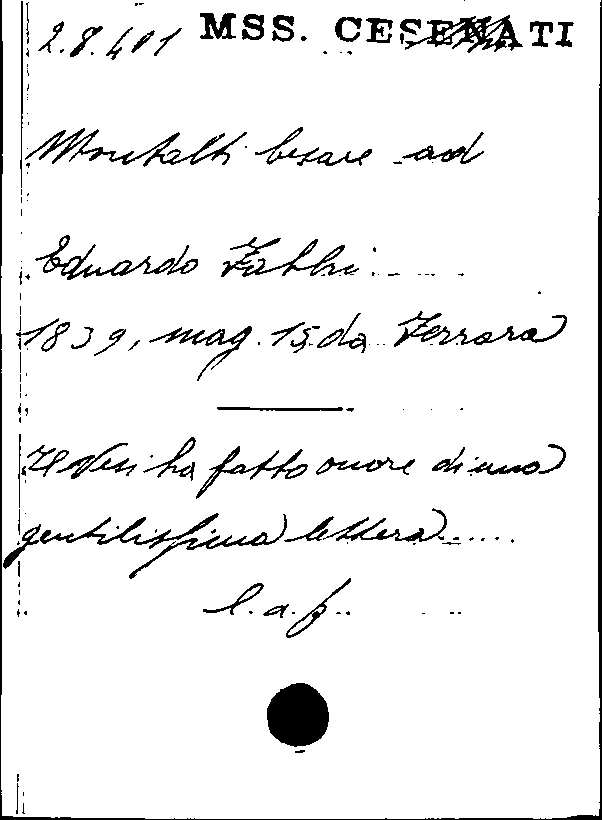 2.8.401 MSS. CESENATI
Montalti Cesare ad
Eduardo Fabbri.....
1839, mag. 15, da Ferrara
Il Vesi ha fatto onore di una
gentilissima lettera......
l.a.f..